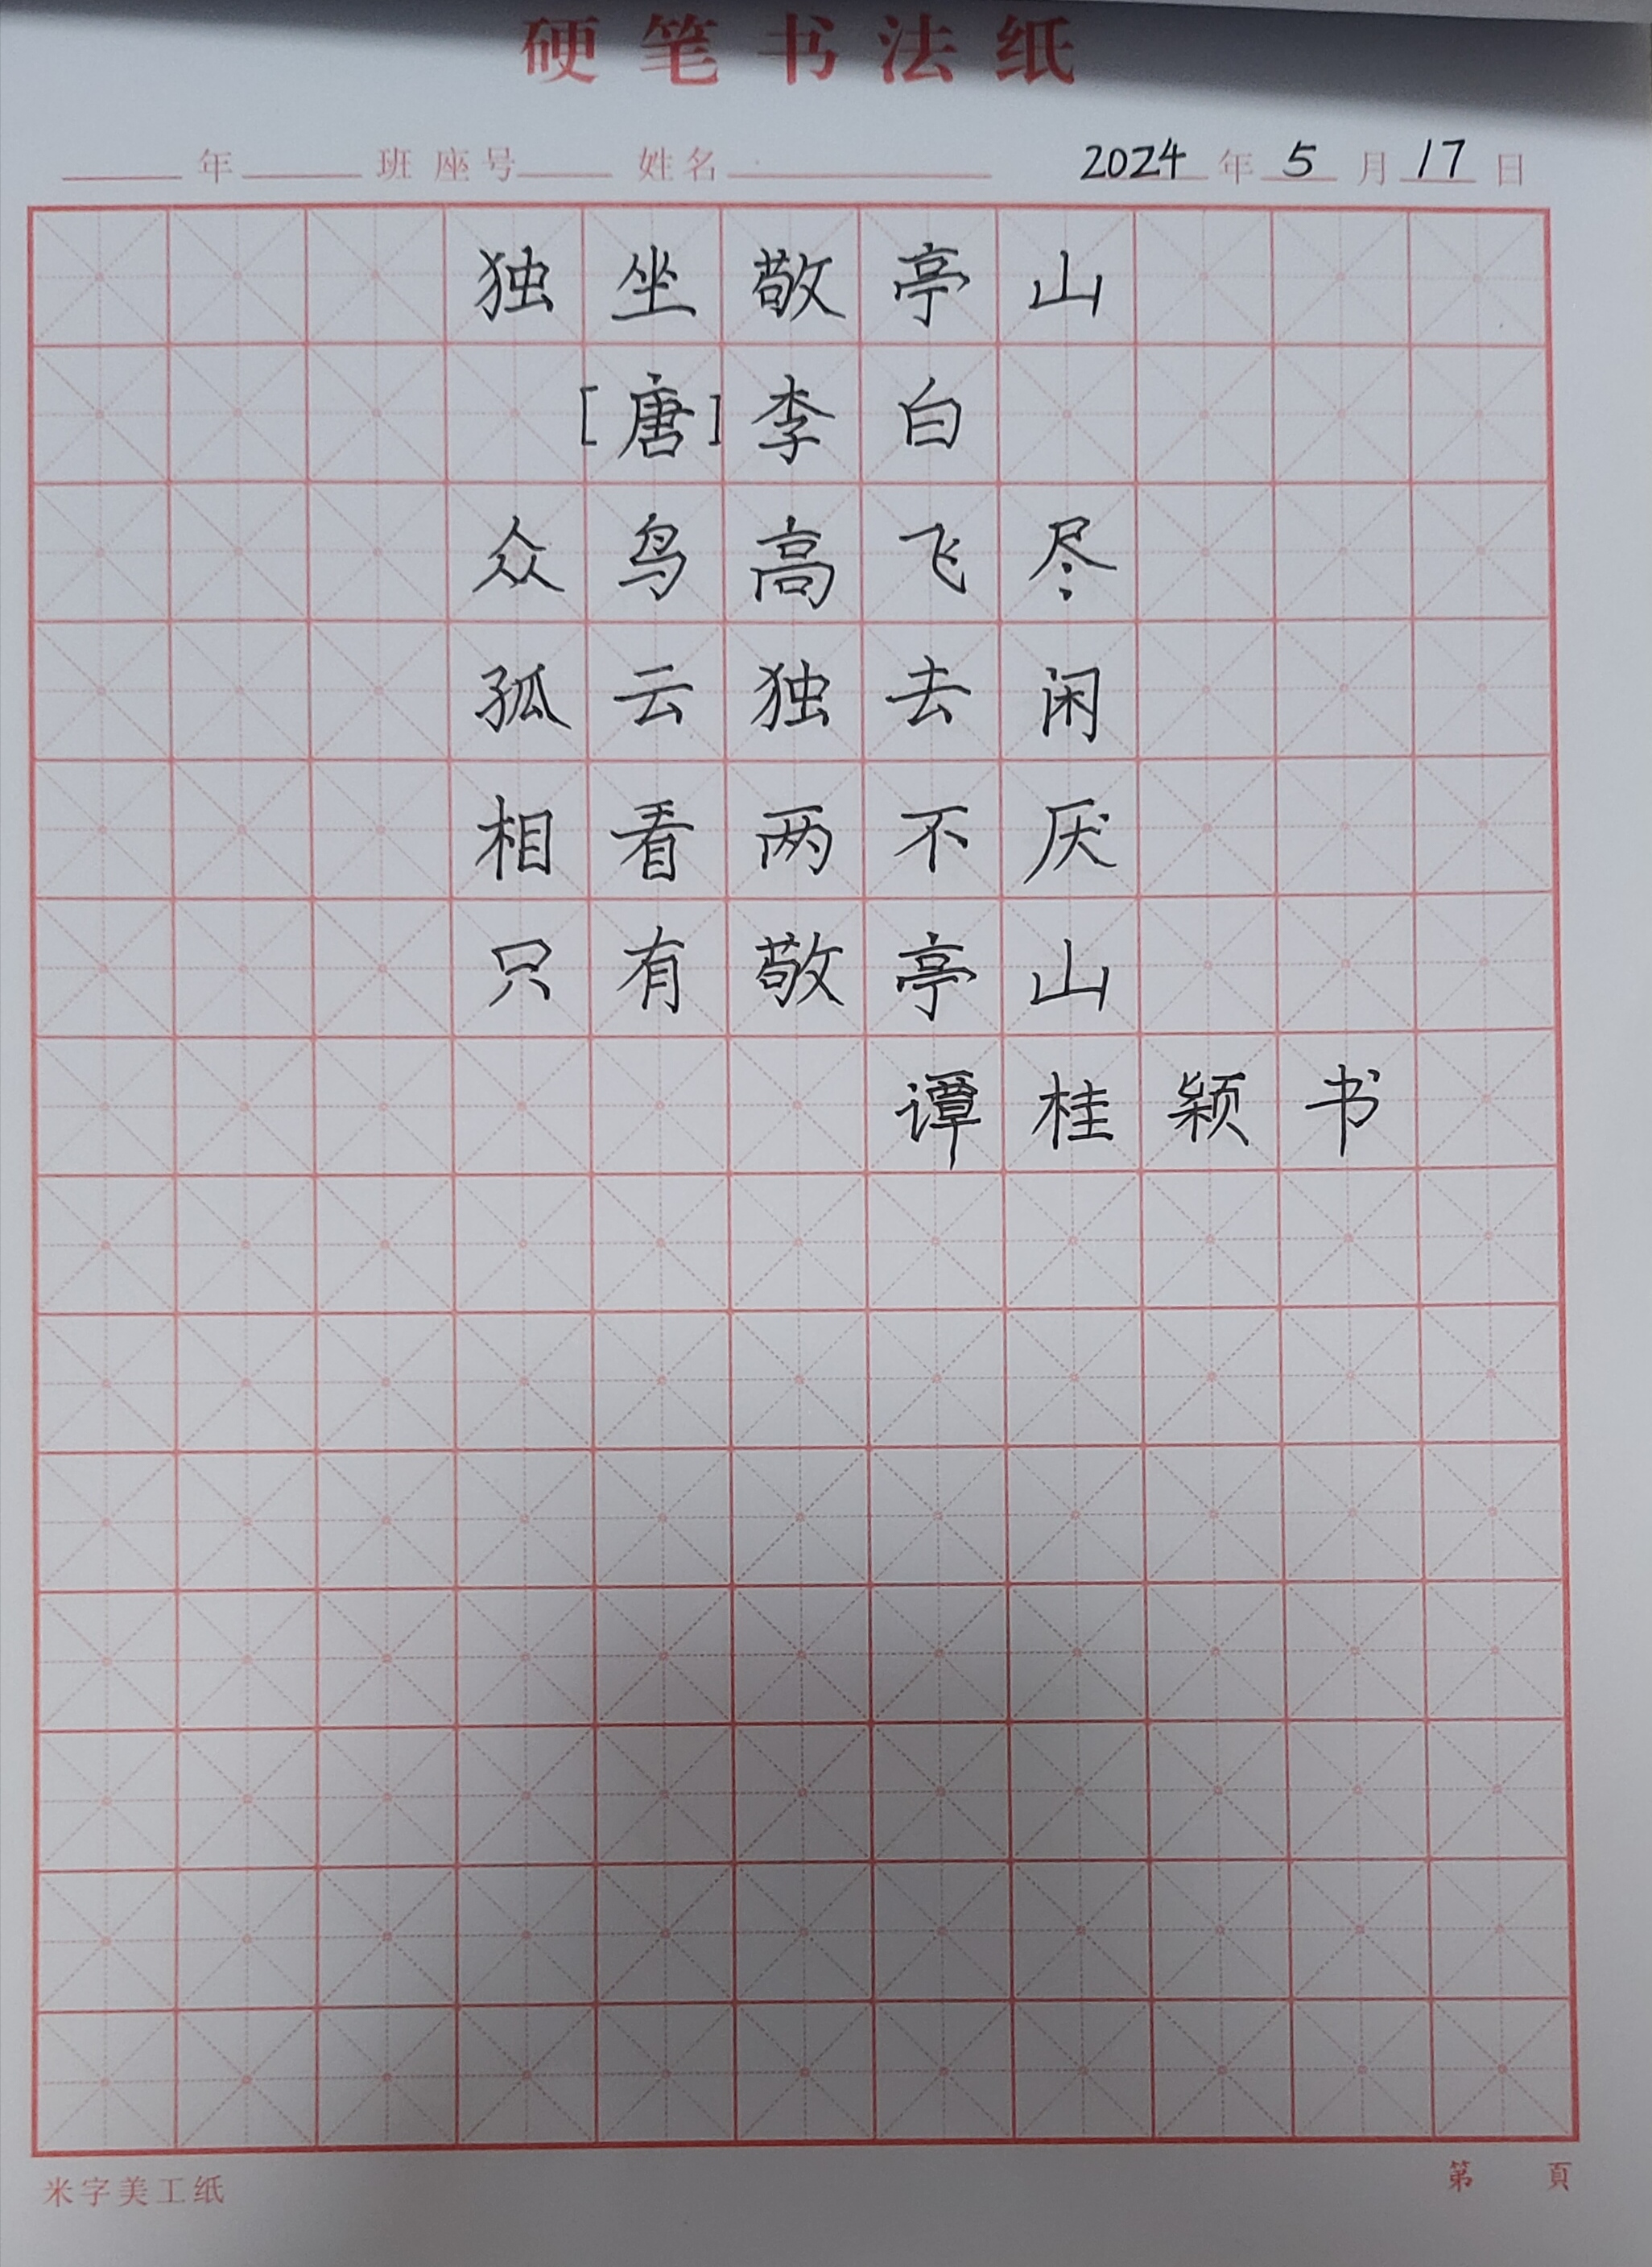 硬笔书法纸
年 班 座号 姓名 2024年5月17日
独坐敬亭山
[唐]李白
众鸟高飞尽
孤云独去闲
相看两不厌
只有敬亭山
谭桂颖书
米字美工纸 第 頁